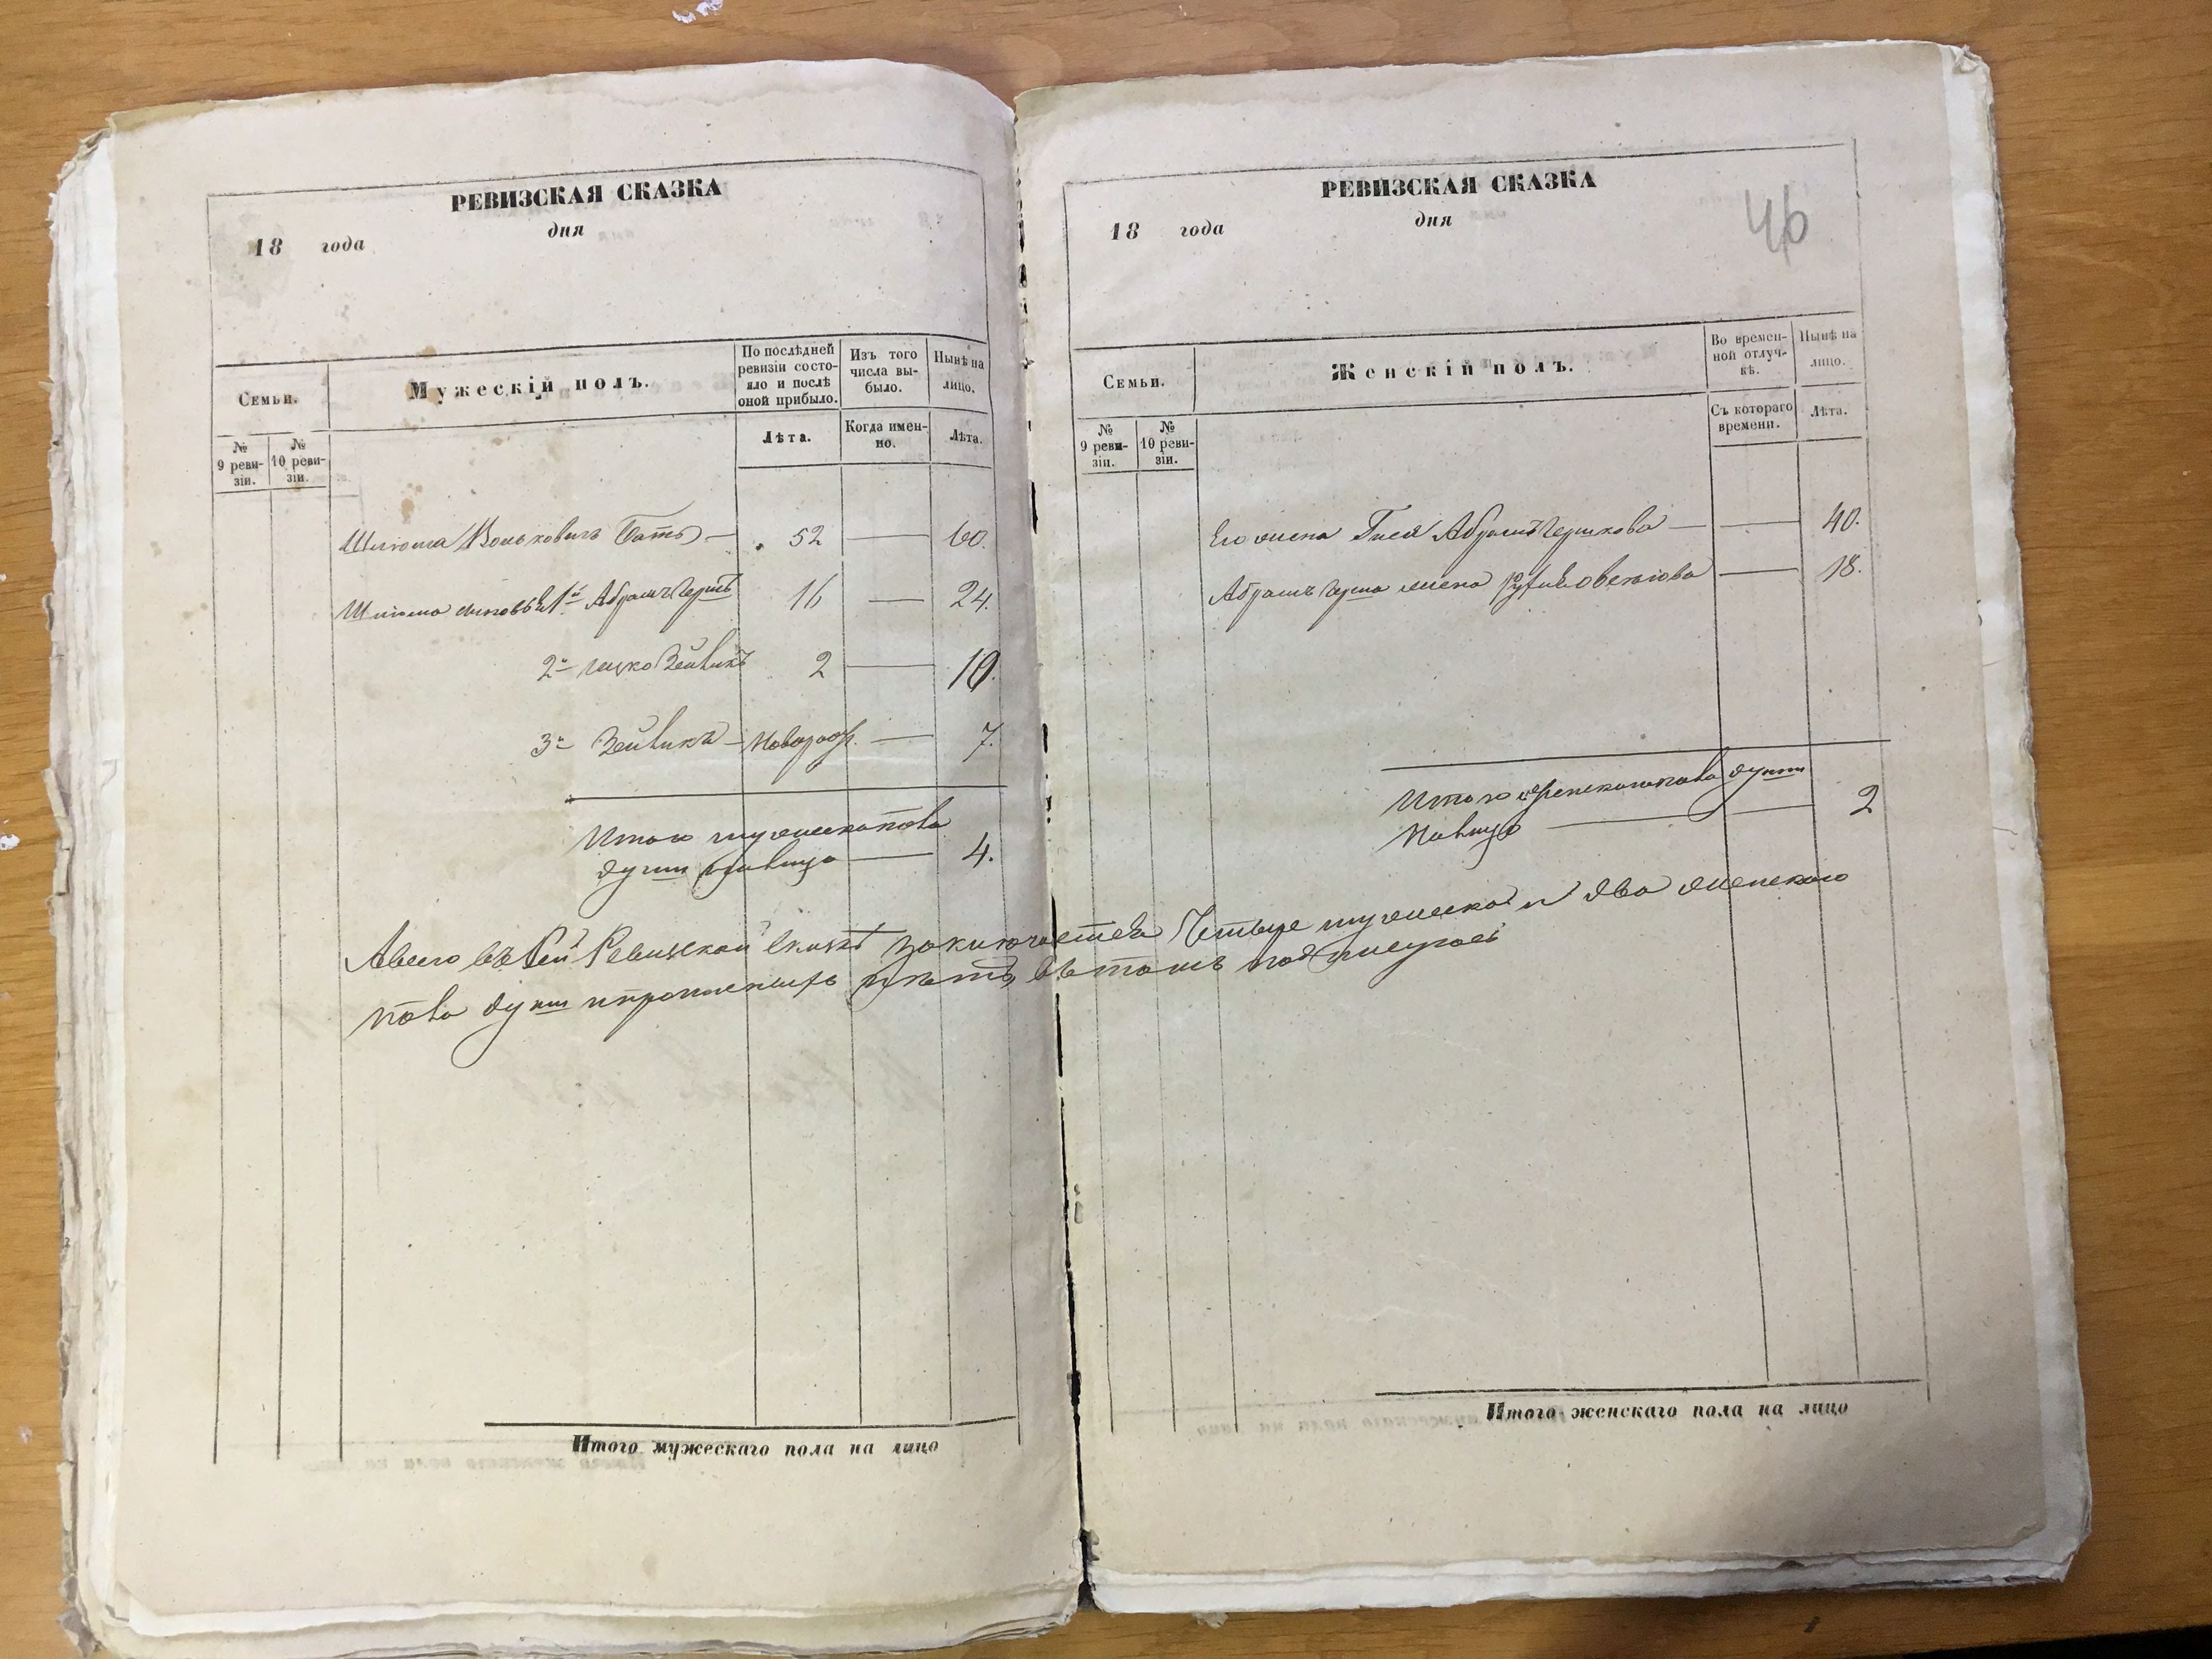 РЕВИЗСКАЯ СКАЗКА
18 года дня
Семьи.
Мужескій полъ.
По послѣдней ревизіи состояло и послѣ оной прибыло.
Изъ того числа выбыло.
Нынѣ на лицо.
№ 9 ревизіи.
№ 10 ревизіи.
Лѣта.
Когда именно.
Лѣта.
Шлиома Вольковичъ 52 — 60.
Шлиома сыновья 1й Абрамъ Гершъ 16 — 24.
2й Ицко Зейликъ 2 — 10.
3й Зейликъ — Новорож. — 7.
Итого мужеска пола
душъ на лицо — 4.
Итого мужескаго пола на лицо
РЕВИЗСКАЯ СКАЗКА
18 года дня
46
Семьи.
Женскій полъ.
Во временной отлучкѣ.
Нынѣ на лицо.
№ 9 ревизіи.
№ 10 ревизіи.
Съ котораго времени.
Лѣта.
Его жена Гися Абрамъ Гершкова — 40.
Абрамъ Герша жена — 18.
Итого женска пола душъ
на лицо — 2
А всего въ сей Ревизской сказкѣ заключается Четыре мужеска и два женского
пола душъ и прописныхъ нѣтъ въ томъ подписуюсь
Итого женскаго пола на лицо